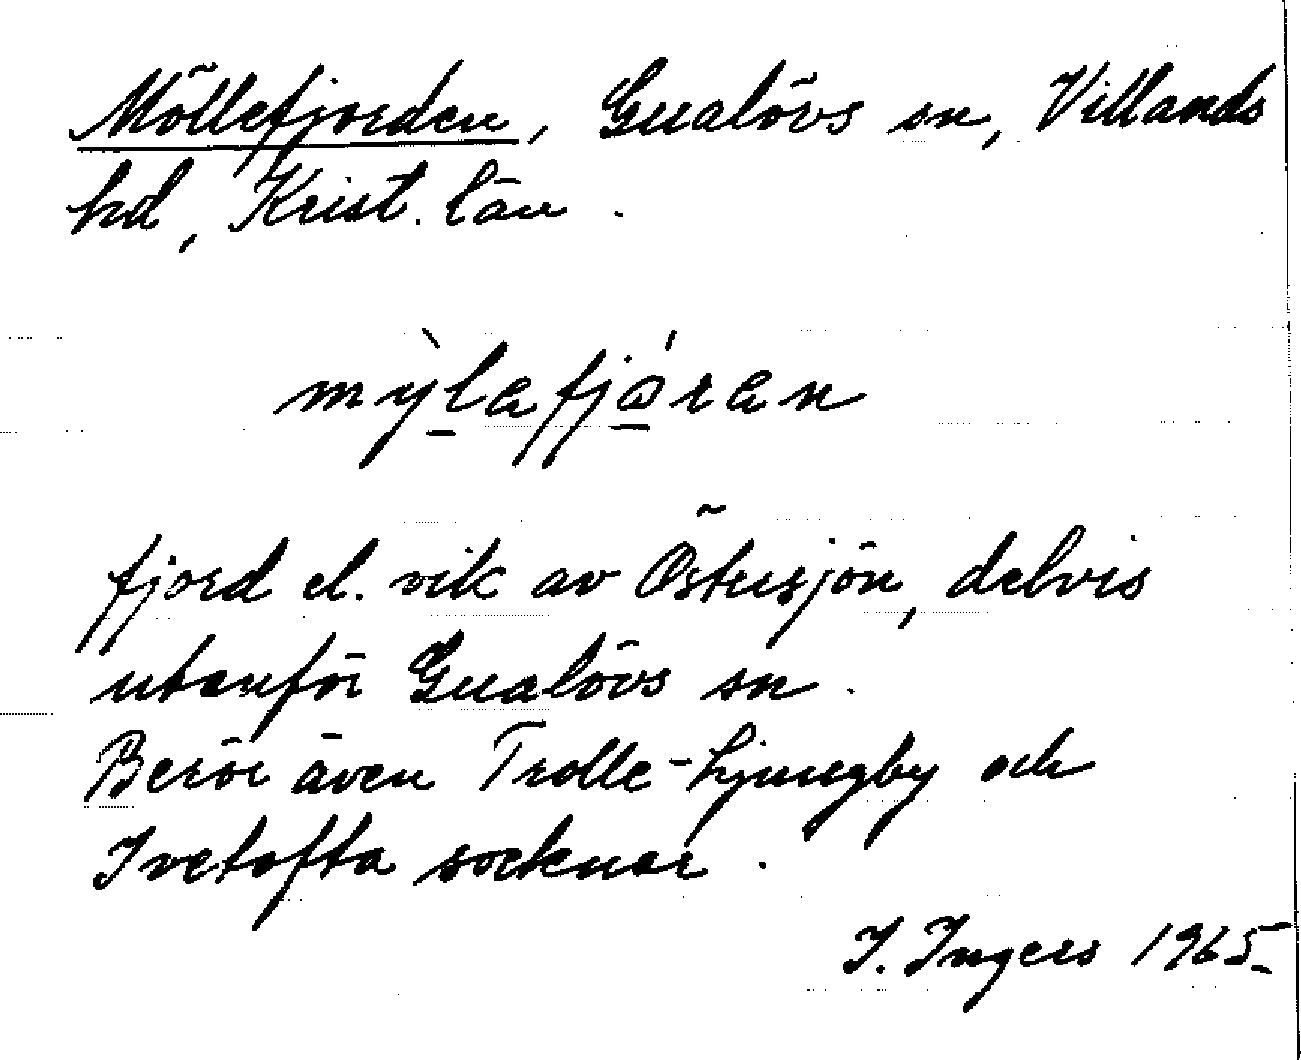 Möllefjorden, Gualövs sn, Villands
hd, Krist. län.
mỳl̲afjá̲ran
fjord el. vik av Östersjön, delvis
utanför Gualövs sn.
Berör även Trolle-Ljungby och
Ivetofta socknar.
I. Ingers 1965